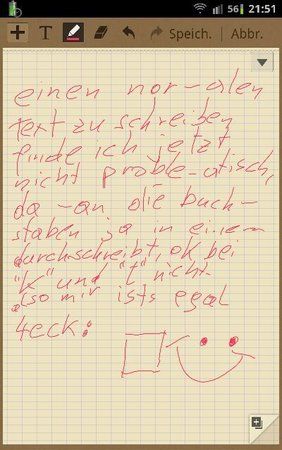 56 21:51
T Speich. Abbr.
einen nor-alen
Text zu schreiben
finde ich jetzt
nicht proble-atisch,
da -an die buch-
staben ja in einem
durchschreibt, ok bei
"k" und "t" nicht-
also mir ists egal
4eck: